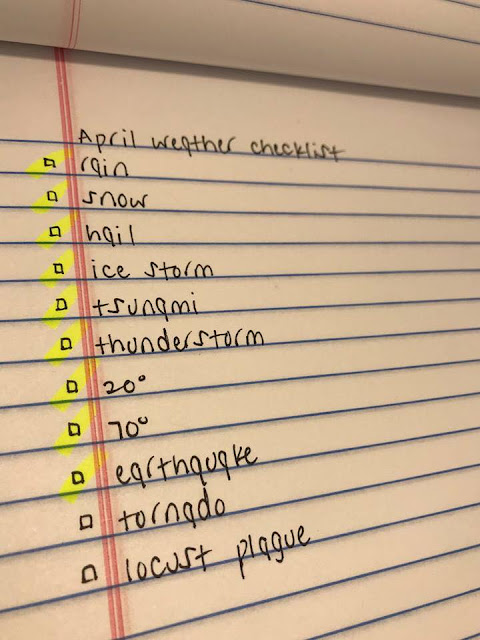 April weather checklist
rain
snow
hail
ice storm
tsunami
thunderstorm
20°
70°
earthquake
tornado
locust plague